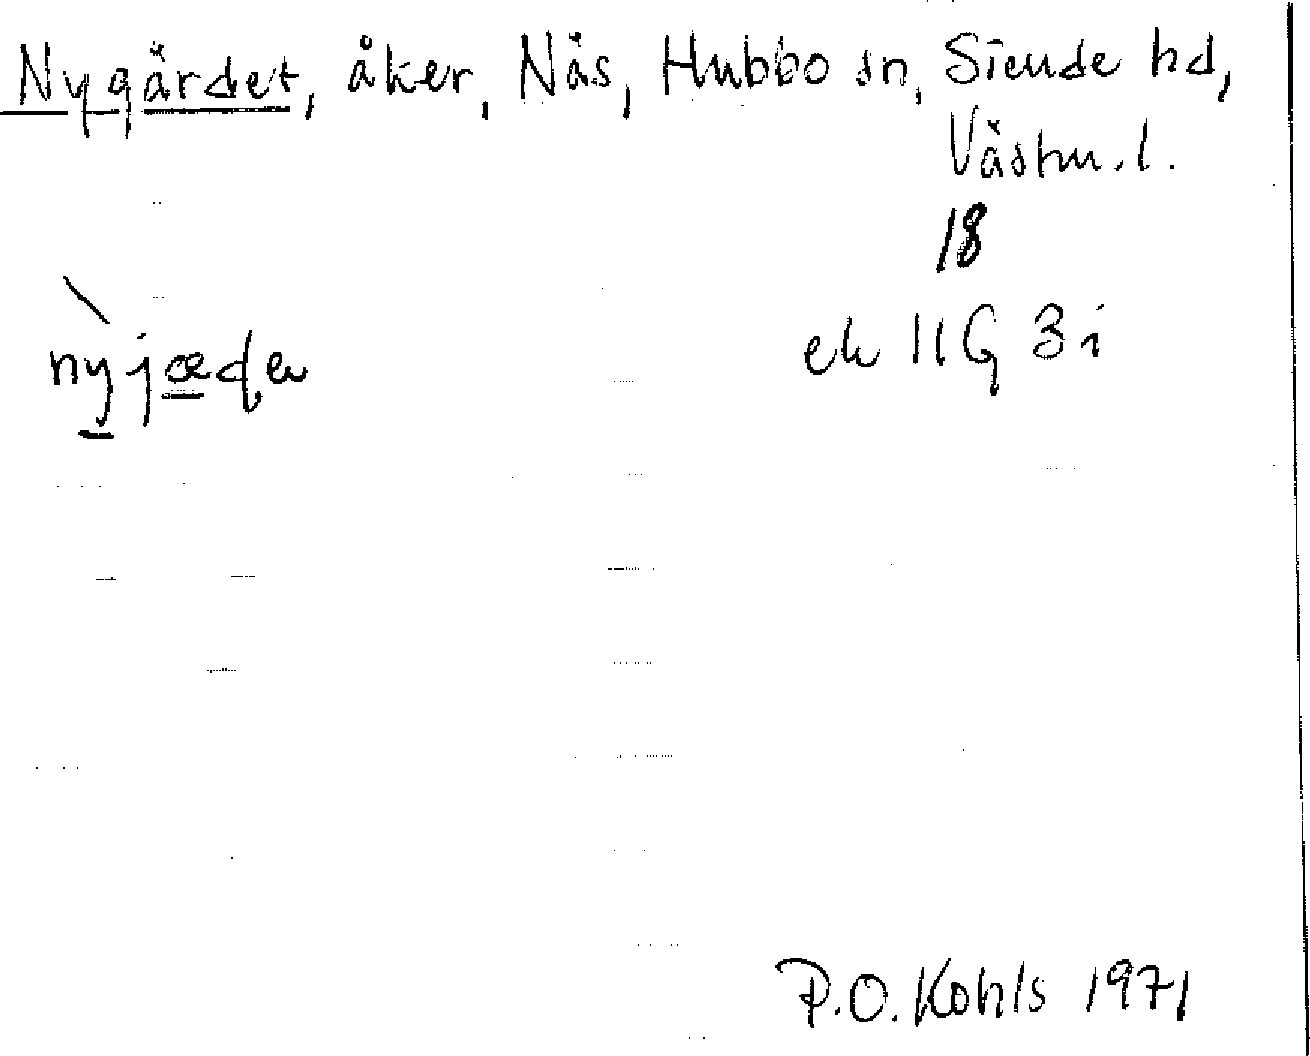 Nygärdet, åker, Näs, Hubbo sn, Siende hd,
Västm. l.
18
ek 11G 3i
P.O. Kohls 1971